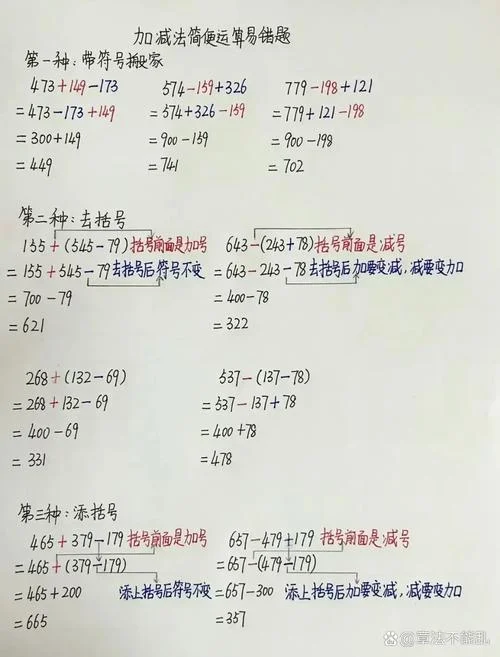 加减法简便运算易错题
第一种：带符号搬家
473+149-173 574-159+326 779-198+121
=473-173+149 =574+326-159 =779+121-198
=300+149 =900-159 =900-198
=449 =741 =702
第二种：去括号
155+(545-79)括号前面是加号 643-(243+78)括号前面是减号
=155+545-79去括号后符号不变 =643-243-78去括号后加要变减,减要变加
=700-79 =400-78
=621 =322
268+(132-69) 537-(137-78)
=268+132-69 =537-137+78
=400-69 =400+78
=331 =478
第三种：添括号
465+379-179括号前面是加号 657-479+179括号前面是减号
=465+(379-179) =657-(479-179)
=465+200 添上括号后符号不变 =657-300 添上括号后加要变减,减要变加
=665 =357
@章法不能乱